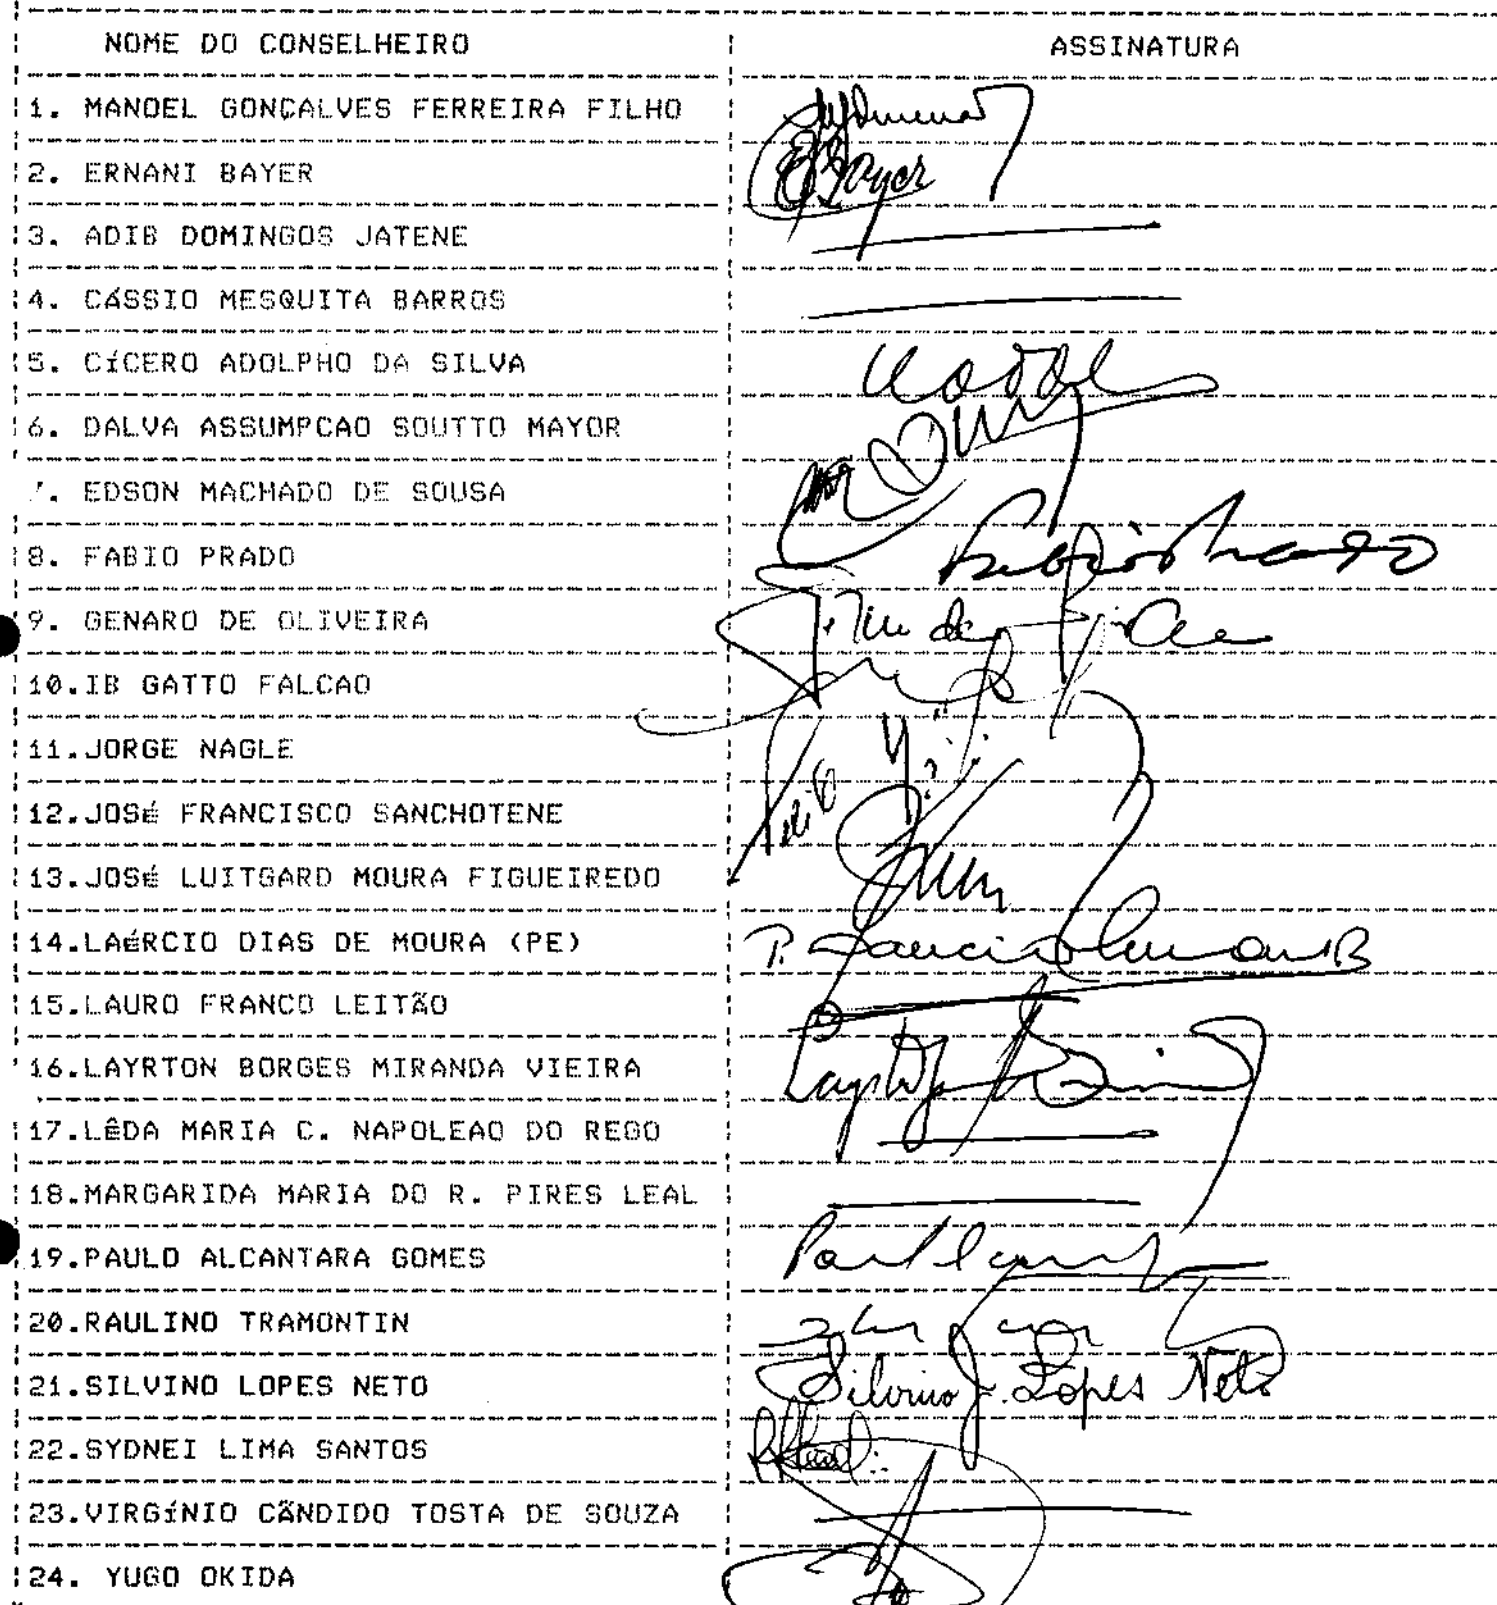 NOME DO CONSELHEIRO ASSINATURA
1. MANOEL GONÇALVES FERREIRA FILHO
2. ERNANI BAYER EBayer
3. ADIB DOMINGOS JATENE
4. CÁSSIO MESQUITA BARROS
5. CÍCERO ADOLPHO DA SILVA
6. DALVA ASSUMPCAO SOUTTO MAYOR
7. EDSON MACHADO DE SOUSA
8. FABIO PRADO Fabio Prado
9. GENARO DE OLIVEIRA
10.IB GATTO FALCAO
11.JORGE NAGLE
12.JOSÉ FRANCISCO SANCHOTENE
13.JOSÉ LUITGARD MOURA FIGUEIREDO
14.LAÉRCIO DIAS DE MOURA (PE)
15.LAURO FRANCO LEITÃO
16.LAYRTON BORGES MIRANDA VIEIRA
17.LÊDA MARIA C. NAPOLEAO DO REGO
18.MARGARIDA MARIA DO R. PIRES LEAL
19.PAULO ALCANTARA GOMES
20.RAULINO TRAMONTIN
21.SILVINO LOPES NETO Silvino J. Lopes Neto
22.SYDNEI LIMA SANTOS
23.VIRGÍNIO CÃNDIDO TOSTA DE SOUZA
24. YUGO OKIDA